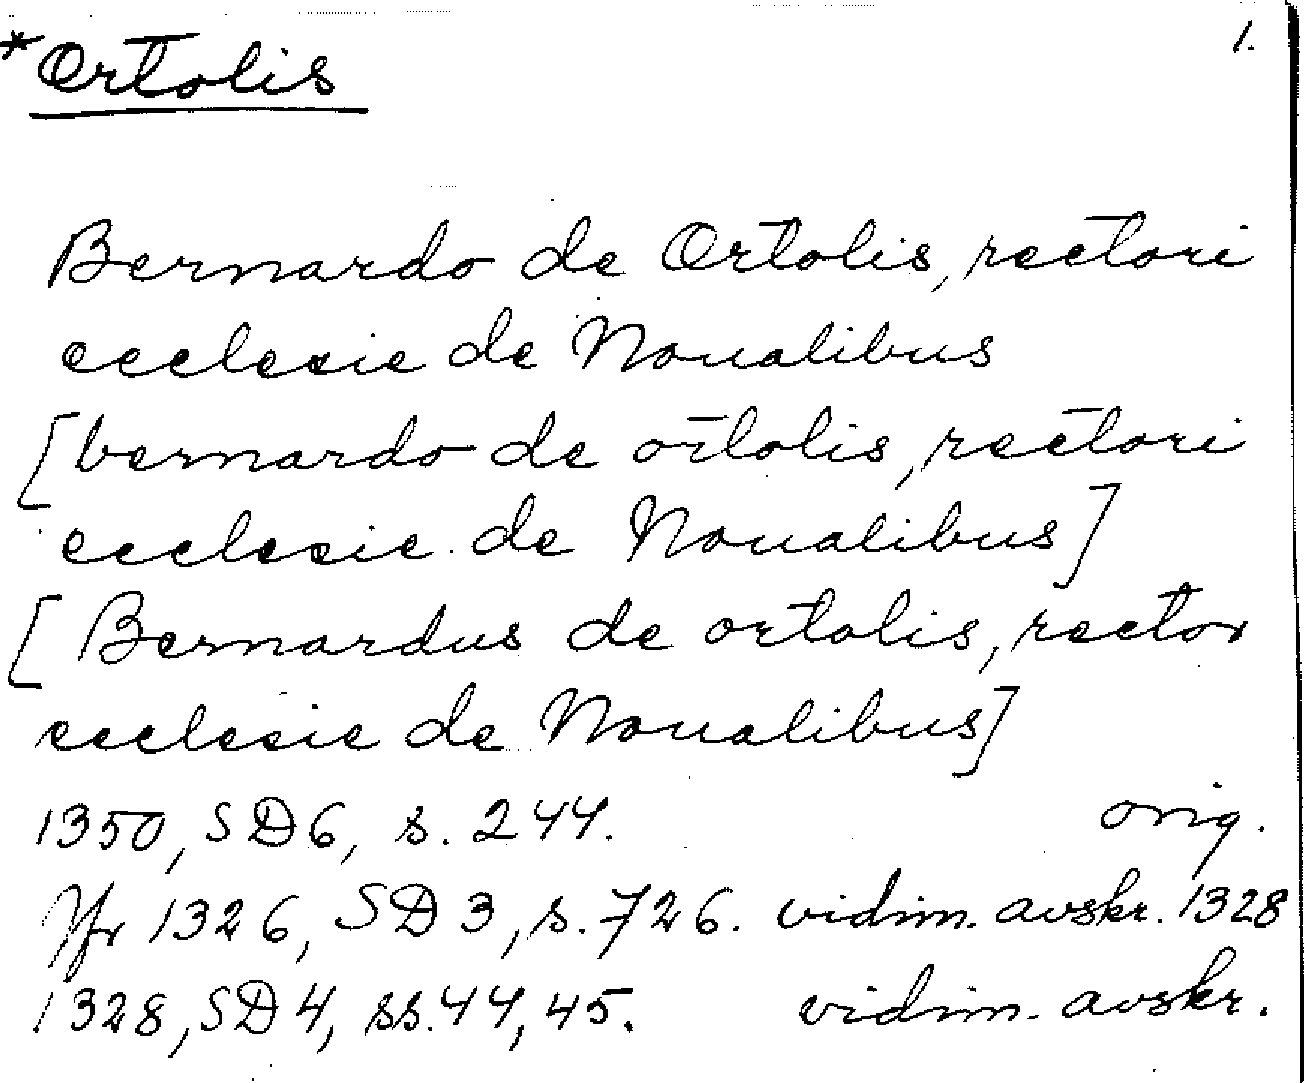 *Ortolis
1.
Bernardo de Ortolis, rectori
ecclesie de Noualibus
[bernardo de ortolis, rectori
ecclesie de Noualibus]
[Bernardus de ortolis, rector
ecclesie de Noualibus]
1350, SD6, s. 244. orig.
Jfr 1326, SD3, s. 726. vidim. avskr. 1328
1328, SD4, ss. 44, 45. vidim. avskr.